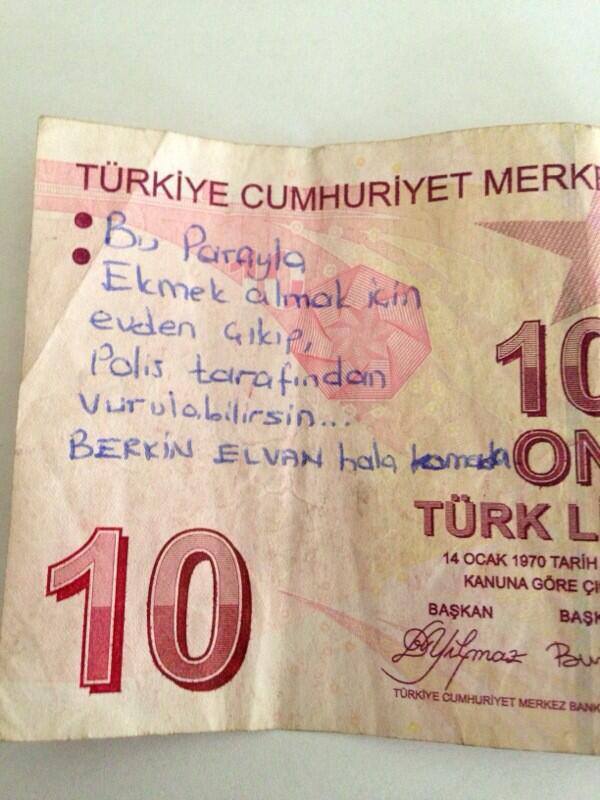 TÜRKİYE CUMHURİYET MERKE
Bu Parayla
Ekmek almak için
evden çıkıp,
Polis tarafından
vurulabilirsin...
BERKİN ELVAN hala komada
10
ON
TÜRK L
14 OCAK 1970 TARİH
KANUNA GÖRE ÇI
BAŞKAN BAŞK
DYılmaz Bu
TÜRKİYE CUMHURİYET MERKEZ BANK
10